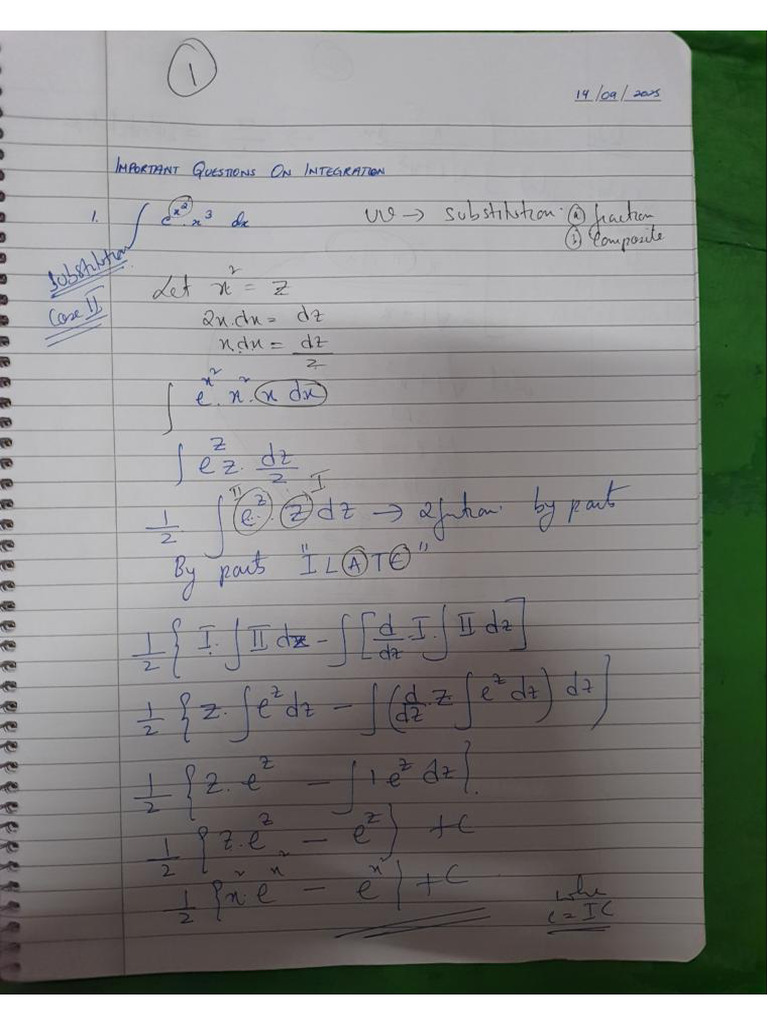 1
14/09/2025
IMPORTANT QUESTIONS ON INTEGRATION
1. ∫ e^(x²) · x³ dx UV → substitution. ⓐ fraction
ⓑ Composite
Substitution
Case II
Let x² = z
2x.dx = dz
x.dx = dz/2
∫ e^(x²) · x² · x dx
∫ e^z z · dz/2
1/2 ∫ e^z · z dz → 2 funtion by part
II I
By parts "ILATE"
1/2 { I · ∫ II dz - ∫ [d/dz I · ∫ II dz]
1/2 { z · ∫ e^z dz - ∫ (d/dz z ∫ e^z dz) dz }
1/2 { z · e^z - ∫ 1 e^z dz }.
1/2 { z · e^z - e^z } + C
1/2 { x² · e^(x²) - e^(x²) } + C
where
C = IC